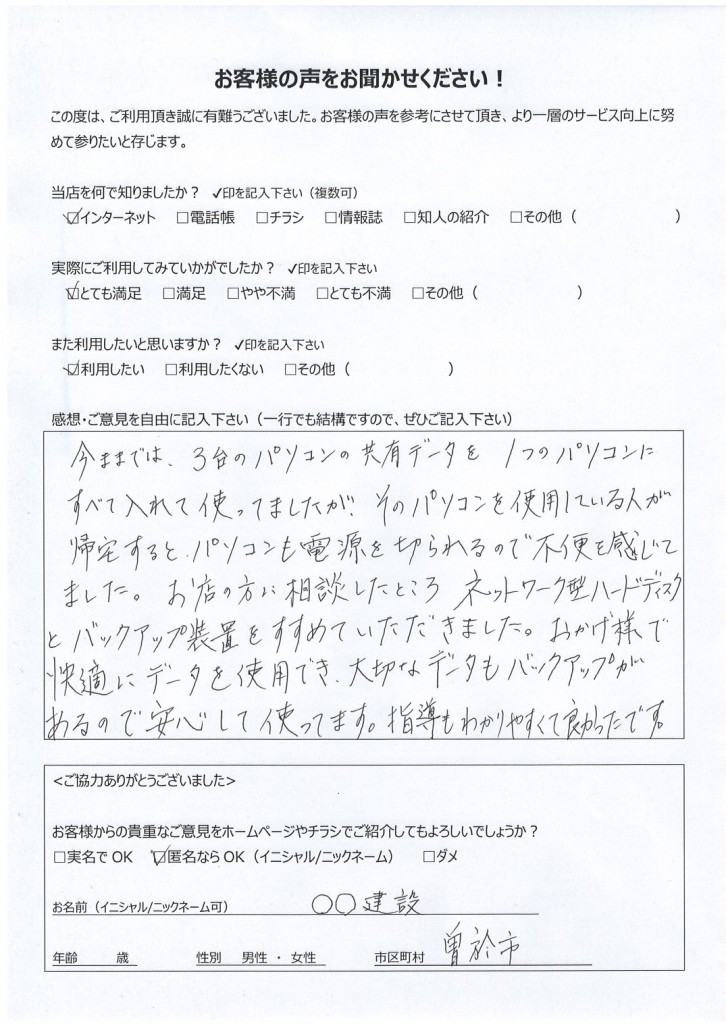 お客様の声をお聞かせください！
この度は、ご利用頂き誠に有難うございました。お客様の声を参考にさせて頂き、より一層のサービス向上に努
めて参りたいと存じます。
当店を何で知りましたか？ ✓印を記入下さい（複数可）
☑インターネット □電話帳 □チラシ □情報誌 □知人の紹介 □その他（ ）
実際にご利用してみていかがでしたか？ ✓印を記入下さい
☑とても満足 □満足 □やや不満 □とても不満 □その他（ ）
また利用したいと思いますか？ ✓印を記入下さい
☑利用したい □利用したくない □その他（ ）
感想・ご意見を自由に記入下さい（一行でも結構ですので、ぜひご記入下さい）
今まででは、3台のパソコンの共有データを 1つのパソコンに
すべて入れて使ってましたが、そのパソコンを使用している人が
帰宅すると、パソコンも電源を切られるので不便を感じて
ました。お店の方に相談したところ ネットワーク型ハードディスク
とバックアップ装置をすすめていただきました。おかげ様で
快適にデータを使用でき、大切なデータもバックアップが
あるので安心して使ってます。指導もわかりやすくて良かったです。
<ご協力ありがとうございました>
お客様からの貴重なご意見をホームページやチラシでご紹介してもよろしいでしょうか？
□実名でOK ☑匿名ならOK（イニシャル/ニックネーム） □ダメ
お名前（イニシャル/ニックネーム可） ○○建設
年齢 歳 性別 男性 ・ 女性 市区町村 曽於市